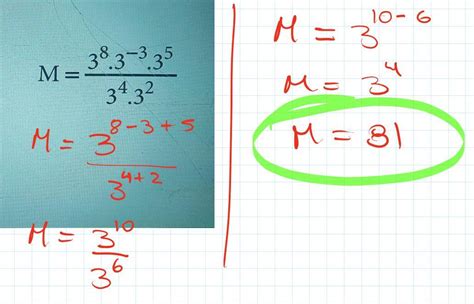 M = 3⁸.3⁻³.3⁵ / 3⁴.3²
M = 3⁸⁻³⁺⁵ / 3⁴⁺²
M = 3¹⁰ / 3⁶
M = 3¹⁰⁻⁶
M = 3⁴
M = 81